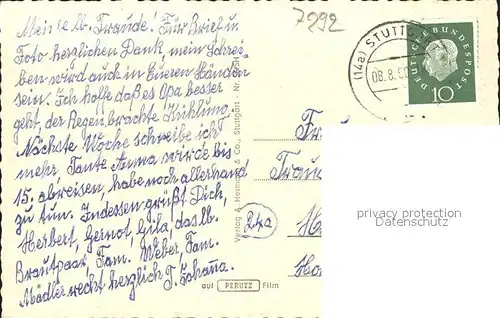 Meine lb. Traude. Für Brief u.
Foto herzlichen Dank, mein Schrei-
ben wird auch in Eueren Händen
sein. Ich hoffe daß es Opa besser
geht, der Regen brachte Kühlung.
Nächste Woche schreibe ich
mehr. Tante Anna wird bis
15. abreisen, habe noch allerhand
zu tun. Indessen grüßt Dich,
Herbert, Gernot, Gila, das lb.
Brautpaar, Fam. Weber, Fam.
Mädler recht herzlich T. Johana.
7292
(14a) STUTTG
08.8.
DEUTSCHE BUNDESPOST
10
Verlag A. & Co., Stuttgart - Nr.
Fr
Trau
24a
H
privacy protection
Datenschutz
auf PERUTZ Film